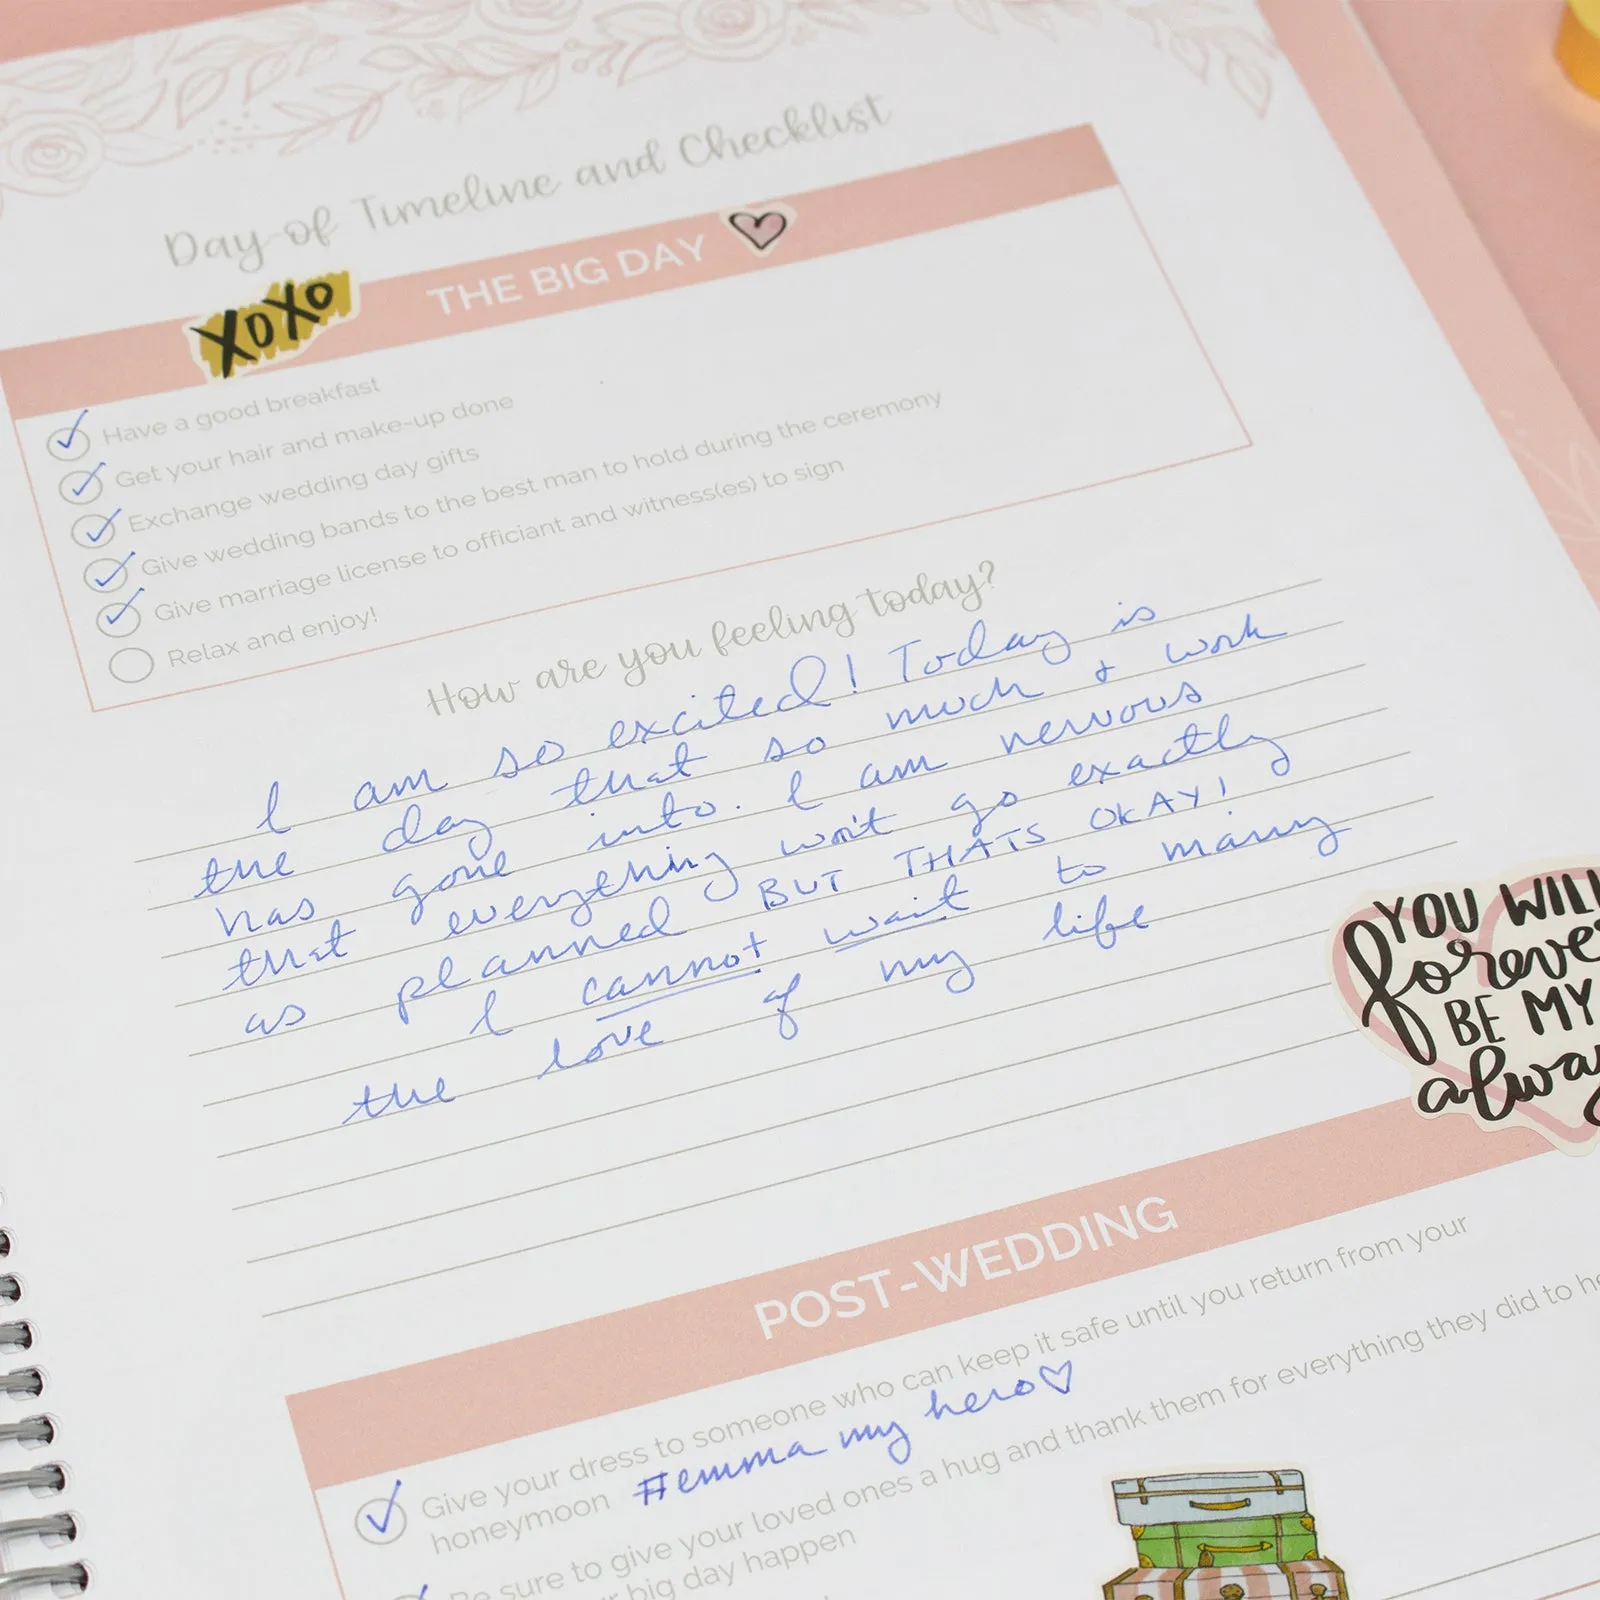 Day-of Timeline and Checklist
THE BIG DAY
XOXO
Have a good breakfast
Get your hair and make-up done
Exchange wedding day gifts
Give wedding bands to the best man to hold during the ceremony
Give marriage license to officiant and witness(es) to sign
Relax and enjoy!
How are you feeling today?
I am so excited! Today is
the day that so much & work
has gone into. I am nervous
that everything won't go exactly
as planned BUT THATS OKAY!
I cannot wait to marry
the love of my life
YOU WILL
forever
BE MY
always
POST-WEDDING
Give your dress to someone who can keep it safe until you return from your
honeymoon #emma my hero♡
Be sure to give your loved ones a hug and thank them for everything they did to
big day happen